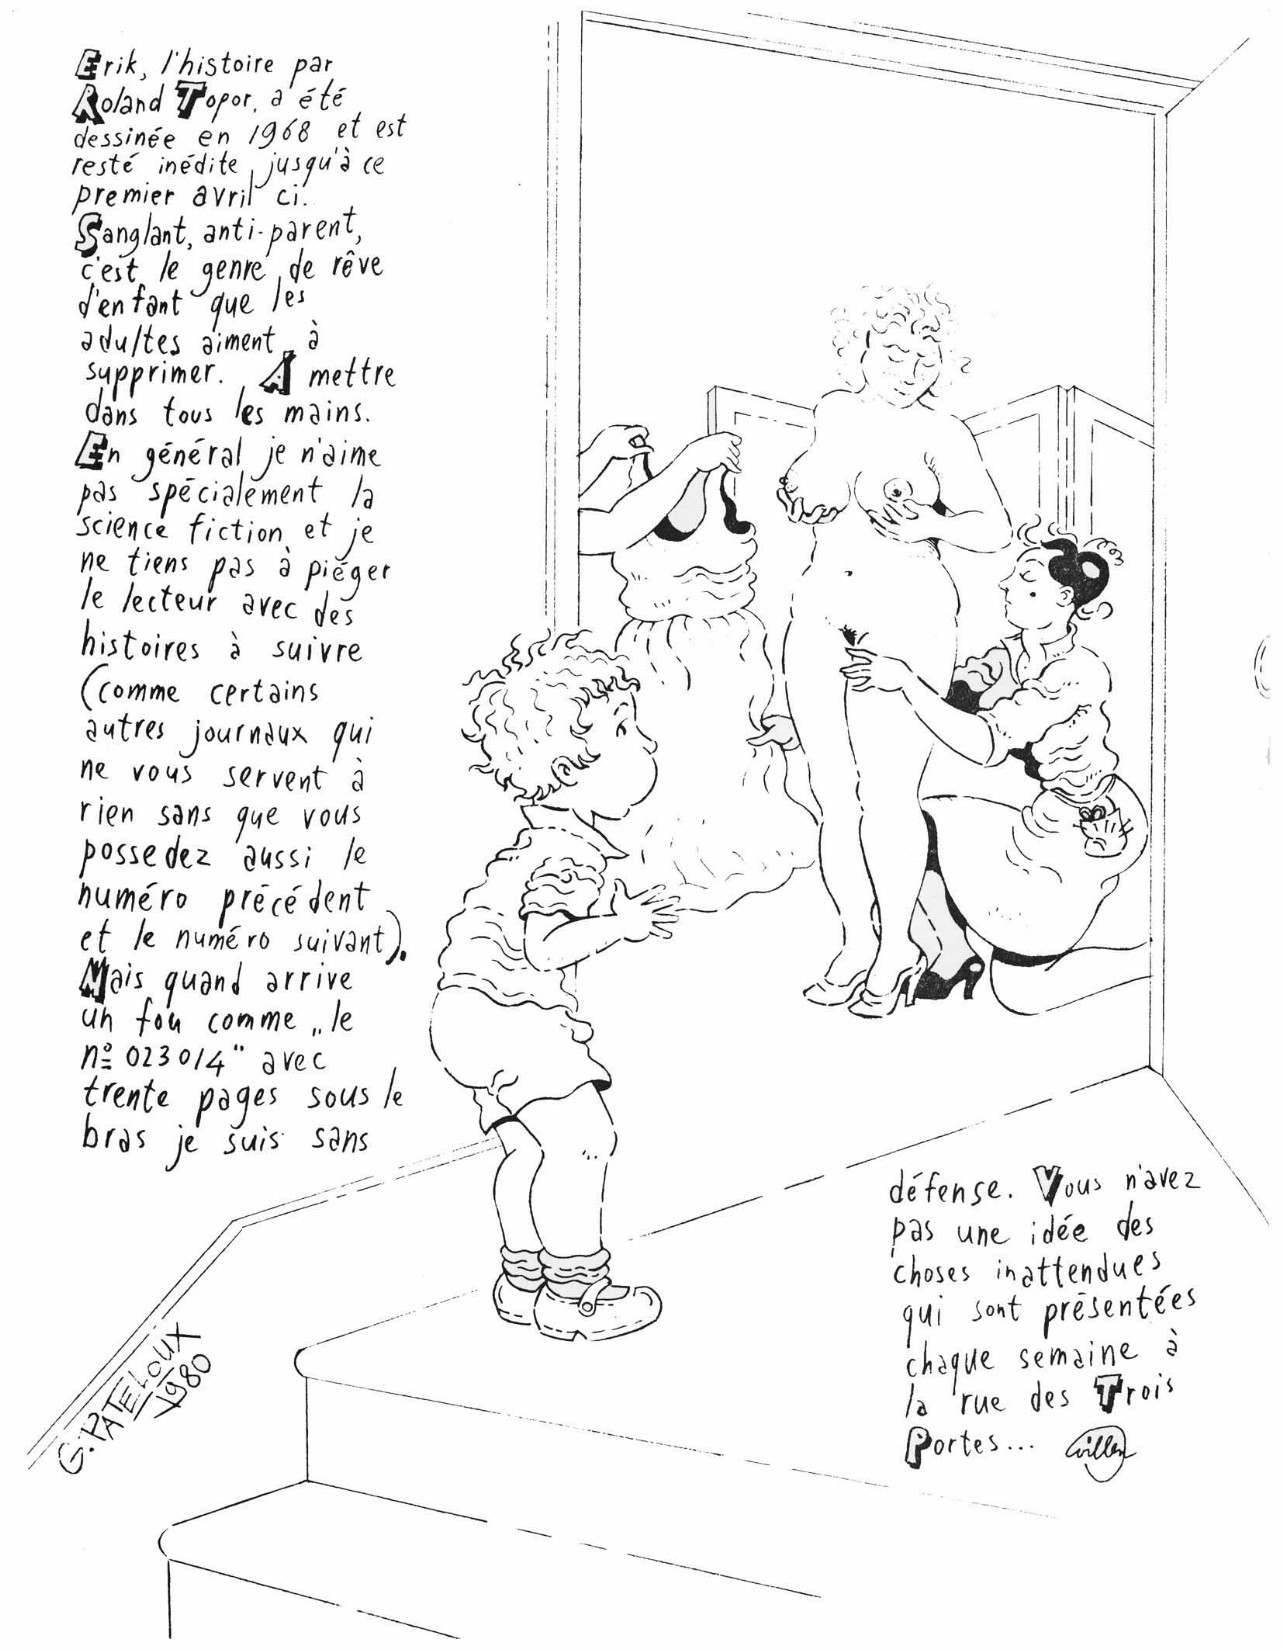 Erik, l'histoire par
Roland Topor, a été
dessinée en 1968 et est
resté inédite jusqu'à ce
premier avril ci.
Sanglant, anti-parent,
c'est le genre de rêve
d'enfant que les
adultes aiment à
supprimer. A mettre
dans tous les mains.
En général je n'aime
pas spécialement la
science fiction et je
ne tiens pas à piéger
le lecteur avec des
histoires à suivre
(comme certains
autres journaux qui
ne vous servent à
rien sans que vous
possedez aussi le
numéro précédent
et le numéro suivant).
Mais quand arrive
un fou comme „le
nº 023014" avec
trente pages sous le
bras je suis sans
défense. Vous n'avez
pas une idée des
choses inattendues
qui sont présentées
chaque semaine à
la rue des Trois
Portes...
Willem
G. PATELOUX
1980